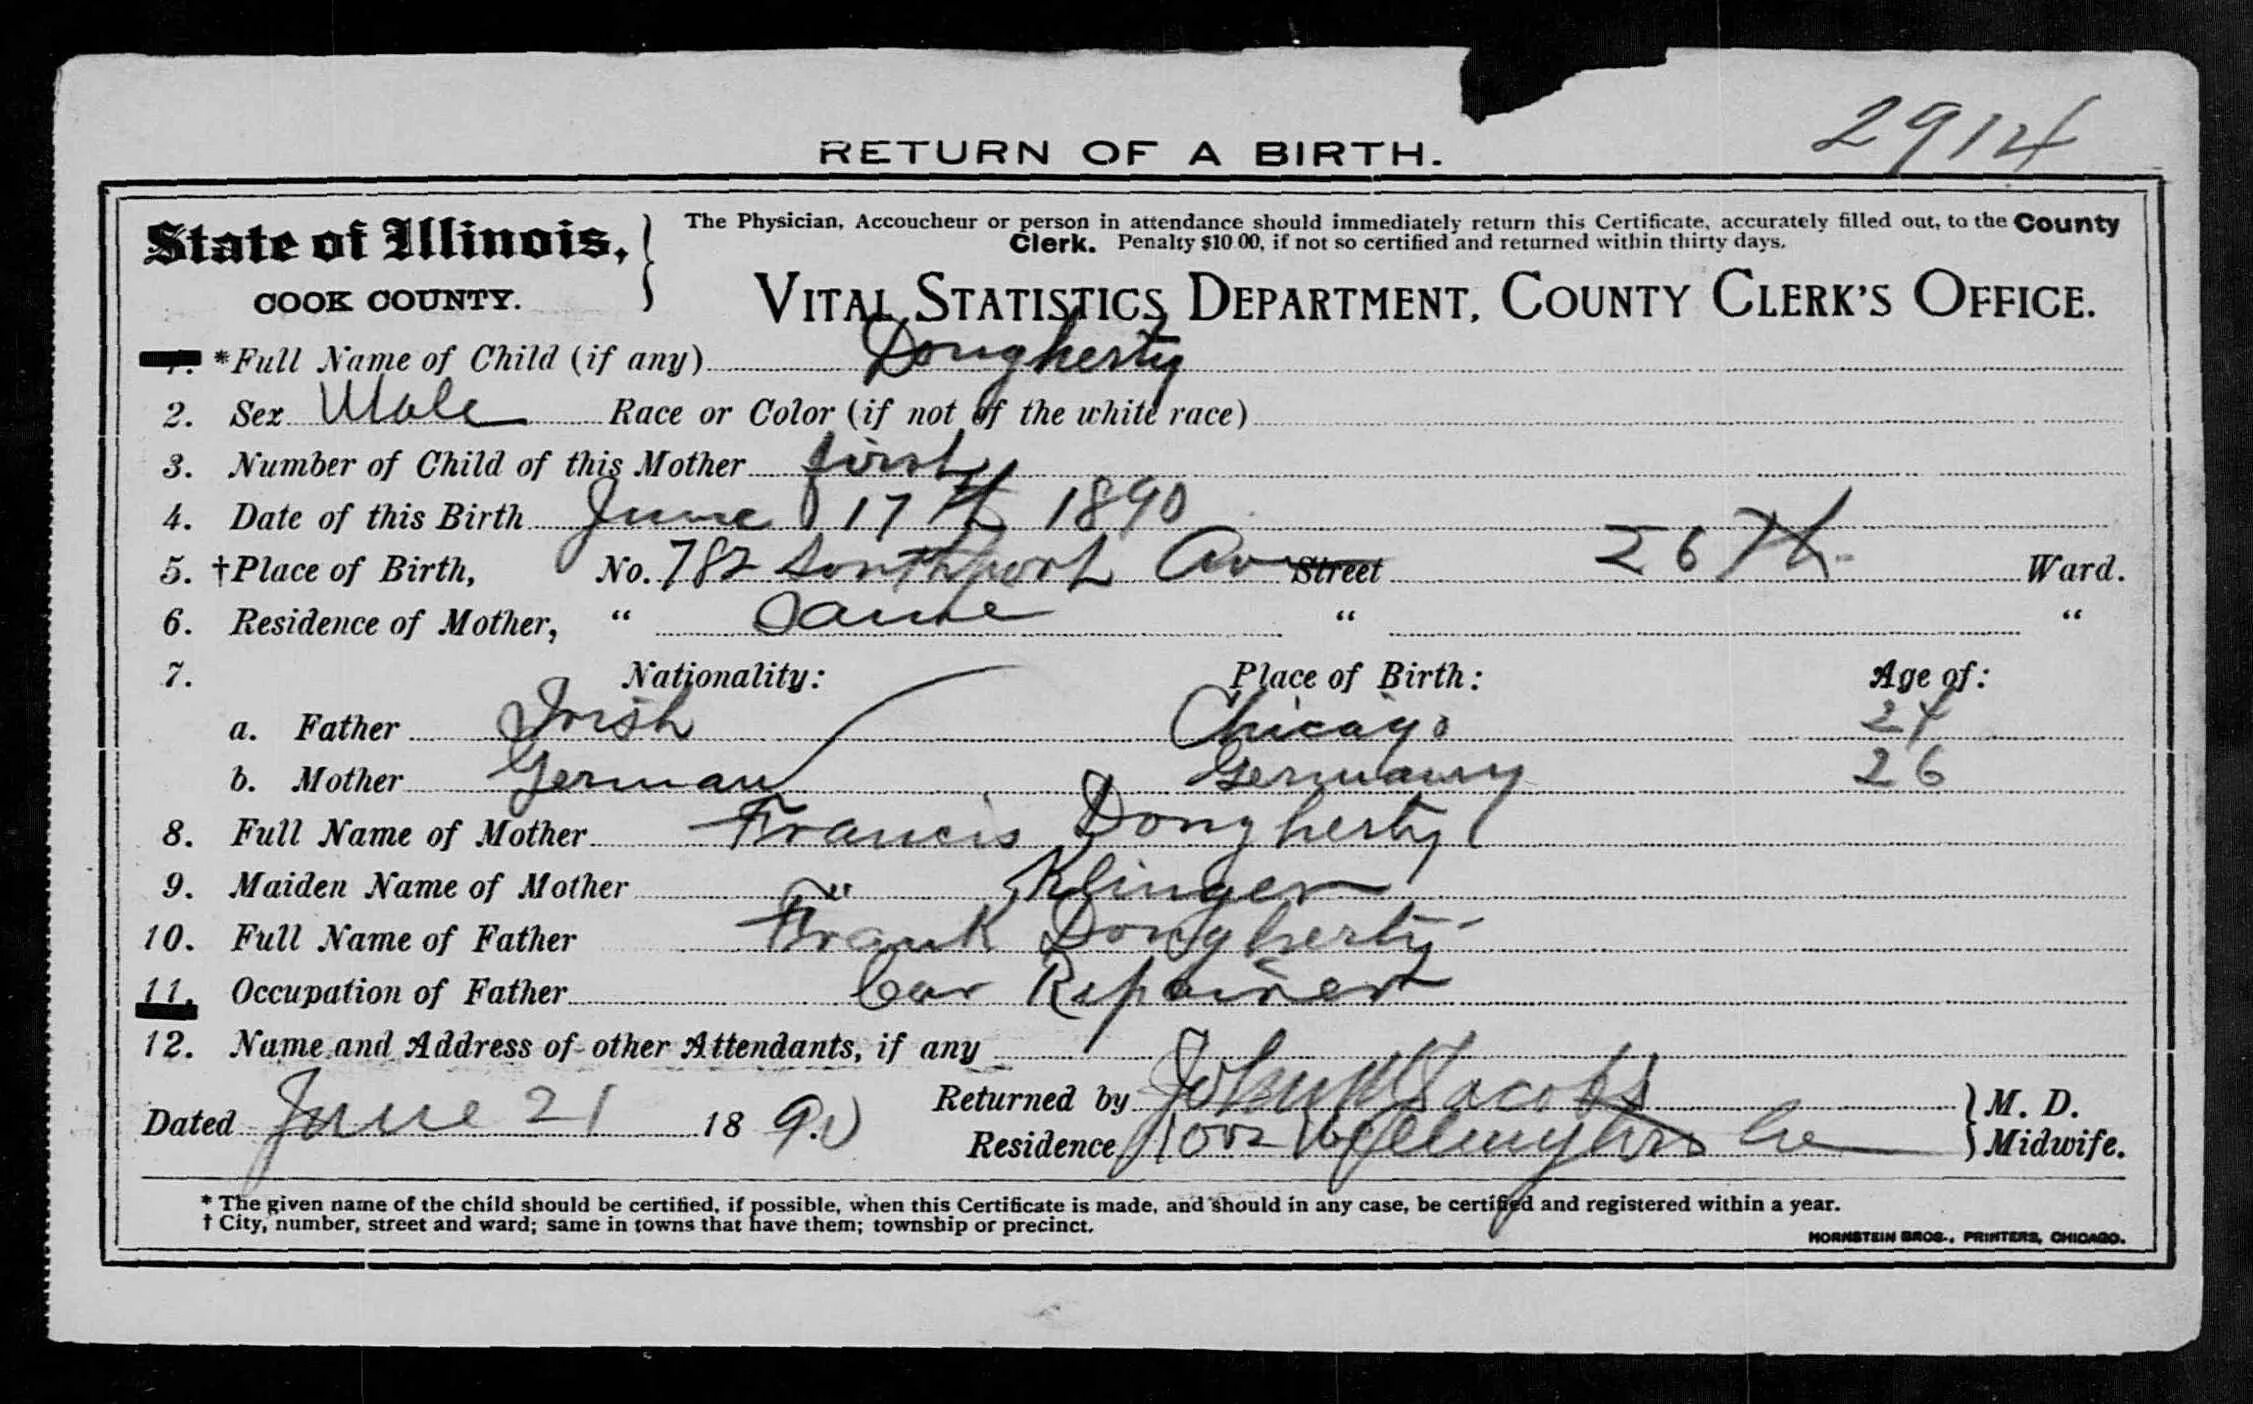 2914
RETURN OF A BIRTH.
State of Illinois, } The Physician, Accoucheur or person in attendance should immediately return this Certificate, accurately filled out, to the County
Clerk. Penalty $10.00, if not so certified and returned within thirty days.
COOK COUNTY. VITAL STATISTICS DEPARTMENT, COUNTY CLERK'S OFFICE.
1. *Full Name of Child (if any) Dougherty
2. Sex Male Race or Color (if not of the white race)
3. Number of Child of this Mother first
4. Date of this Birth June 17th 1890
5. †Place of Birth, No. 782 Southport Av Street 26th Ward.
6. Residence of Mother, " Same " "
7. Nationality: Place of Birth: Age of:
a. Father Irish Chicago 24
b. Mother German Germany 26
8. Full Name of Mother Francis Dougherty
9. Maiden Name of Mother " Klinger
10. Full Name of Father Frank Dougherty
11. Occupation of Father Car Repairer
12. Name and Address of other Attendants, if any
Dated June 21 1890 Returned by John Jacobs } M. D.
Residence 1002 Wellington } Midwife.
* The given name of the child should be certified, if possible, when this Certificate is made, and should in any case, be certified and registered within a year.
† City, number, street and ward; same in towns that have them; township or precinct.
HORNSTEIN BROS., PRINTERS, CHICAGO.